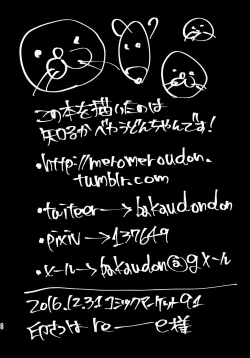 この本を描いたのは
べわうどんちゃんです!
・http://meromeroudon.
tumblr.com
・twiteer→bakaudondon
・pixiv→137649
・メール→bakaudon@gメール
2016.12.31コミックマーケット91
印さつは 様
8